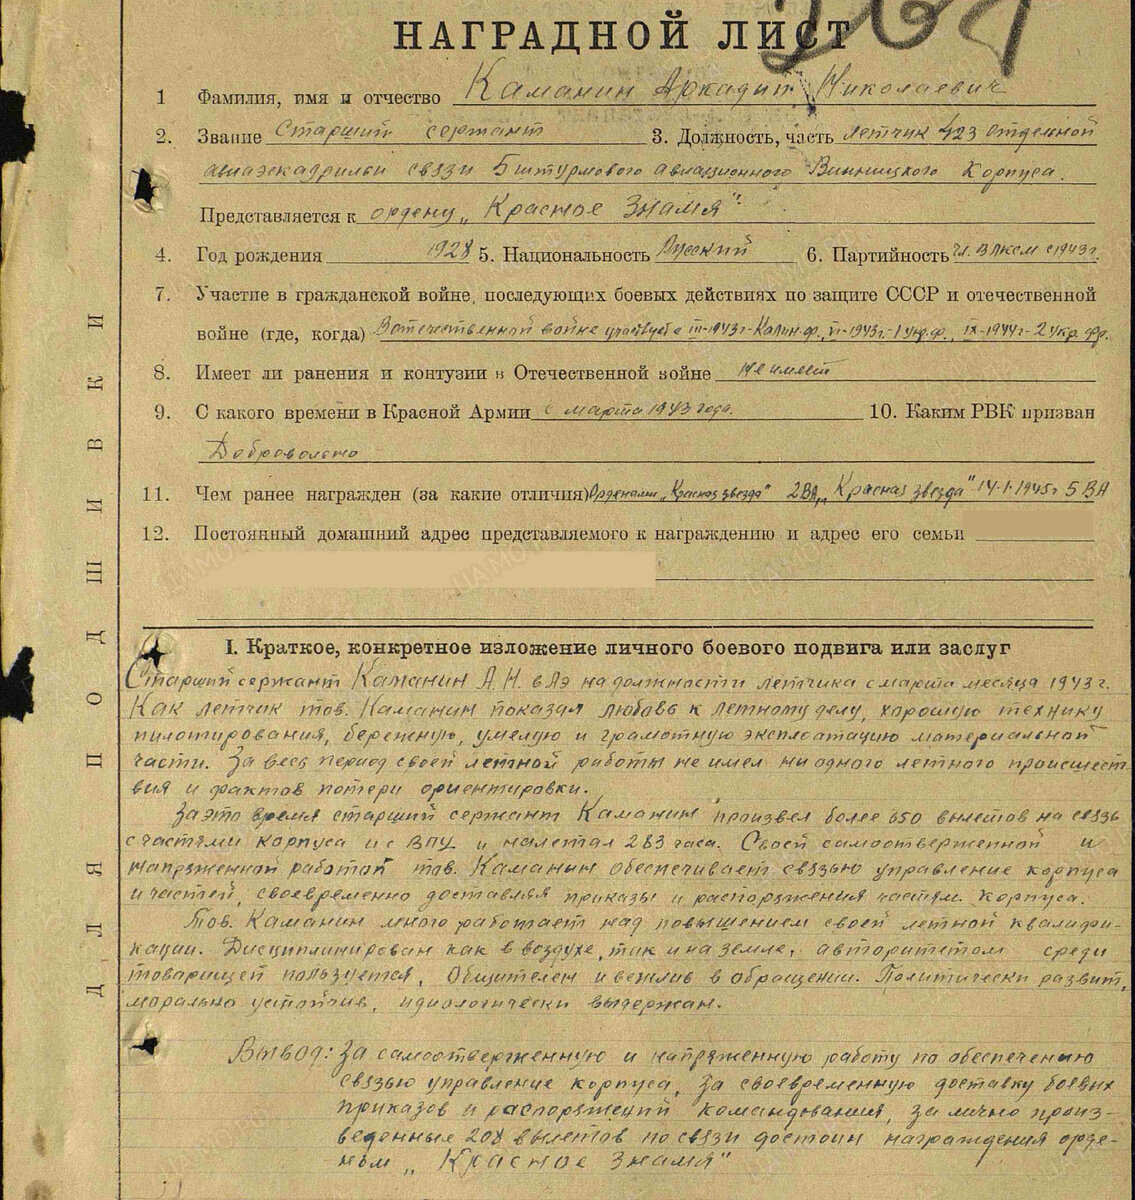 НАГРАДНОЙ ЛИСТ
1 Фамилия, имя и отчество Каманин Аркадий Николаевич
2. Звание Старший сержант 3. Должность, часть летчик 423 отдельной
авиаэскадрильи связи 5 штурмового авиационного Винницкого Корпуса.
Представляется к ордену „Красное Знамя"
4. Год рождения 1928 5. Национальность Русский 6. Партийность Чл. ВЛКСМ с 1943 г.
7. Участие в гражданской войне, последующих боевых действиях по защите СССР и отечественной
войне (где, когда) В отечественной войне участвует с III-1943г-Калин.ф., VI-1943г.-1 Укр.ф., IX-1944г-2 Укр. Фр.
8. Имеет ли ранения и контузии в Отечественной войне Не имеет
9. С какого времени в Красной Армии с марта 1943 года. 10. Каким РВК призван
Добровольно
11. Чем ранее награжден (за какие отличия) Орденами „Красная звезда" 2ВА, „Красная звезда" 14.1.1945г 5 ВА
12. Постоянный домашний адрес представляемого к награждению и адрес его семьи
ДЛЯ ПОДШИВКИ
I. Краткое, конкретное изложение личного боевого подвига или заслуг
Старший сержант Каманин А.Н. в АЭ на должности летчика с марта месяца 1943 г.
Как летчик тов. Каманин показал любовь к летному делу, хорошую технику
пилотирования, бережную, умелую и грамотную эксплоатацию материальной
части. За весь период своей летной работы не имел ни одного летного происшест-
вия и фактов потери ориентировки.
За это время старший сержант Каманин произвел более 650 вылетов на связь
с частями корпуса и с ВПУ и налетал 283 часа. Своей самоотверженной и
напряженной работой тов. Каманин обеспечивает связью управление корпуса
и частей, своевременно доставляя приказы и распоряжения частям корпуса.
Тов. Каманин много работает над повышением своей летной квалифи-
кации. Дисциплинирован как в воздухе, так и на земле, авторитетом среди
товарищей пользуется, Общителен и вежлив в обращении. Политически развит,
морально устойчив, идиологически выдержан.
Вывод: За самоотверженную и напряженную работу по обеспечению
связью управление корпуса, за своевременную доставку боевых
приказов и распоряжений командования, за лично произ-
веденные 208 вылетов по связи достоин награждения орде-
ном „Красное Знамя"